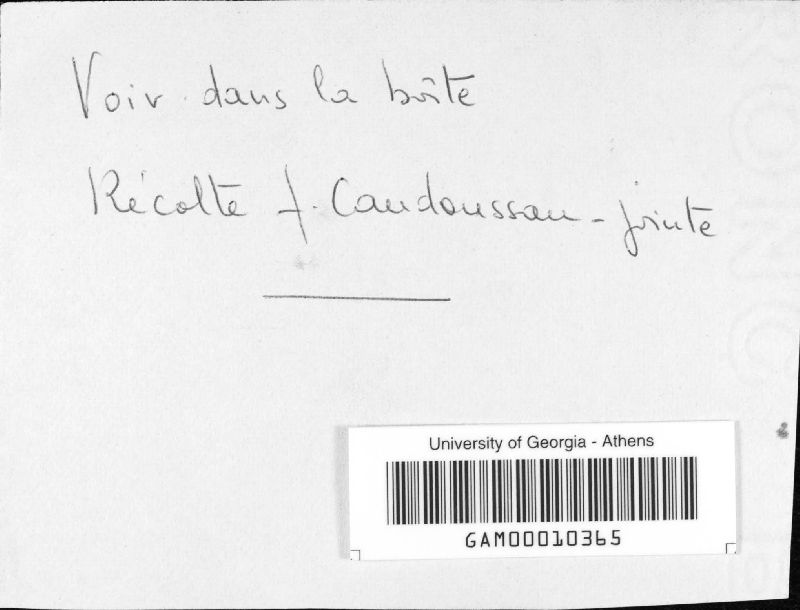 Voir dans la boîte
Récolte J. Caudoussau - jointe
University of Georgia - Athens
GAM00010365